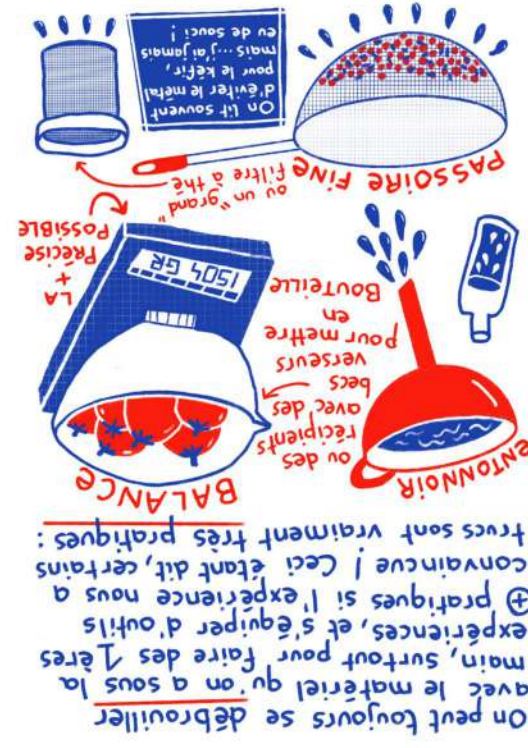 On peut toujours se débrouiller
avec le matériel qu'on a sous la
main, surtout pour faire des 1ères
expériences, et s'équiper d'outils
+ pratiques si l'expérience nous a
convaincue ! Ceci étant dit, certains
trucs sont vraiment très pratiques :
ENTONNOIR
ou des
récipients
avec des
becs
verseurs
pour mettre
en
BOUTEILLE
BALANCE
1504 GR
LA
+
PRÉCISE
POSSIBLE
PASSOIRE FINE
ou un "grand"
filtre à thé
On lit souvent
d'éviter le métal
pour le kéfir,
mais ... j'ai jamais
eu de souci !